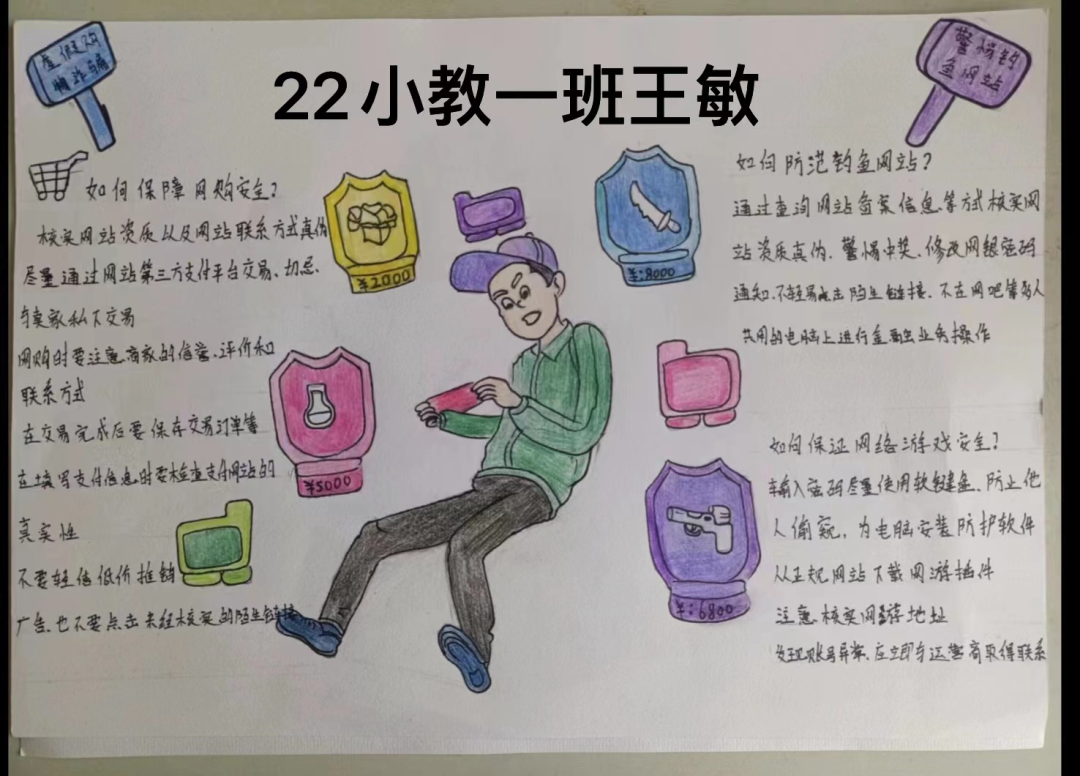 虚假购
物诈骗
22小教一班王敏
警惕钓
鱼网站
如何保障网购安全?
核实网站资质以及网站联系方式真伪
尽量通过网站第三方支付平台交易、切忌
与卖家私下交易
网购时要注意商家的信誉、评价和
联系方式
在交易完成后要保存交易订单等
在填写支付信息时要检查支付网站的
真实性
不要轻信低价推销
广告、也不要点击未经核实的陌生链接
¥2000
¥5000
¥:8000
¥:6800
如何防范钓鱼网站?
通过查询网站备案信息等方式核实网
站资质真伪、警惕中奖、修改网银密码
通知、不轻易点击陌生链接、不在网吧等多人
共用的电脑上进行金融业务操作
如何保证网络游戏安全?
输入密码尽量使用软键盘、防止他
人偷窥,为电脑安装防护软件
从正规网站下载网游插件
注意核实网游地址
发现账号异常、应立即与运营商取得联系